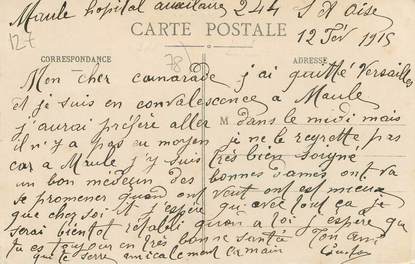 Maule hopital auxiliaire 244 S et Oise
12-7
CARTE POSTALE
12 Fev 1915
78
CORRESPONDANCE
ADRESSE
Mon cher camarade j'ai quitté Versailles
et je suis en convalescence a Maule
j'aurai préféré aller dans le midi mais
M
il n'y a pas eu moyen je ne le regrette pas
car a Maule j'y suis très bien soigné
un bon médecin des bonnes dames ont va
se promener quand ont veut ont est mieux
que chez soi et j'espère qu'avec tout ça je
serai bientot retabli quan a toi j'espère que
tu es toujour en très bonne santé Ton ami
qui te serre amicalement la main